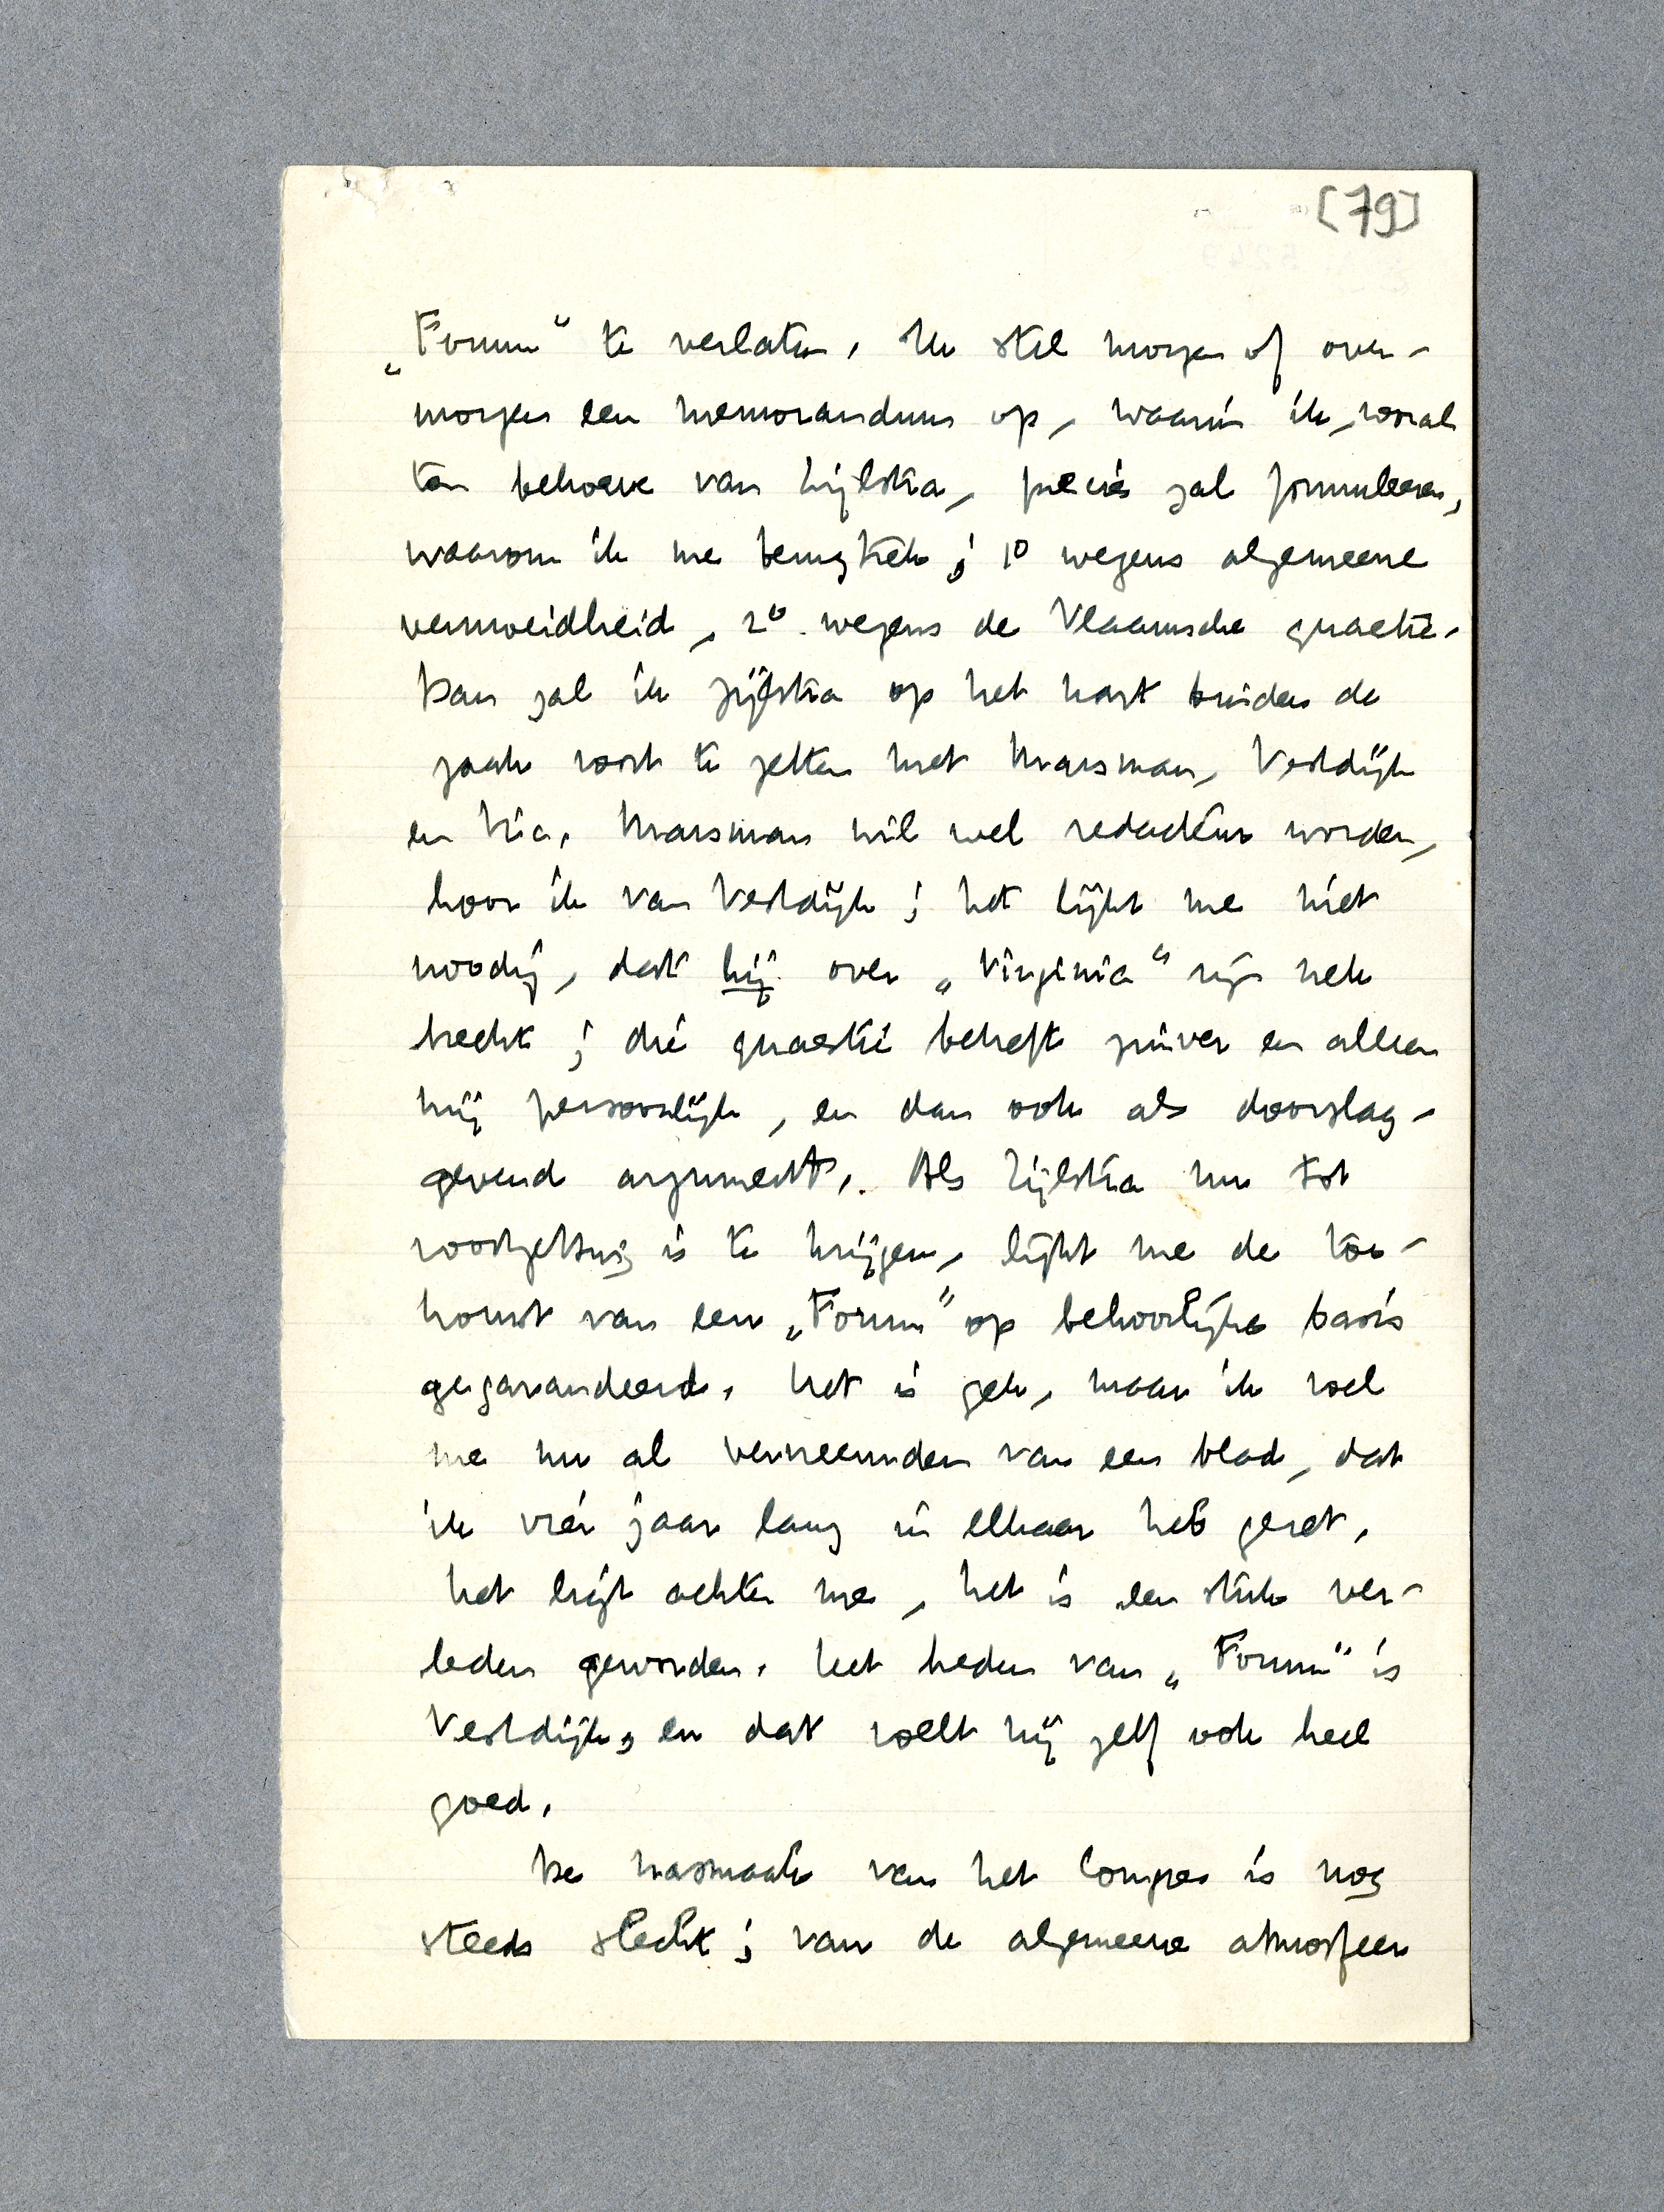 [79]
„Forum" te verlaten. Ik stel morgen of over-
morgen een memorandum op, waarin ik, vooral
ten behoeve van Zijlstra, precies zal formuleeren,
waarom ik me terugtrek; 1º wegens algemeene
vermoeidheid, 2º wegens de Vlaamsche quaestie.
Dan zal ik Zijlstra op het hart binden de
zaak voort te zetten met Marsman, Vestdijk
en Vic. Marsman wil wel redacteur worden,
hoor ik van Vestdijk; het lijkt me niet
noodig, dat hij over „Virginia" zijn nek
breekt; die quaestie betreft zuiver en alleen
mij persoonlijk, en dan ook als doorslag-
gevend argument. Als Zijlstra nu tot
voortzetting is te krijgen, lijkt me de toe-
komst van een „Forum" op behoorlijke basis
gegarandeerd. Het is gek, maar ik voel
me nu al vervreemden van een blad, dat
ik vier jaar lang in elkaar heb gezet.
Het ligt achter me, het is een stuk ver-
leden geworden. Het heden van „Forum" is
Vestdijk, en dat voelt hij zelf ook heel
goed.
De nasmaak van het Congres is nog
steeds slecht; van de algemeene atmosfeer